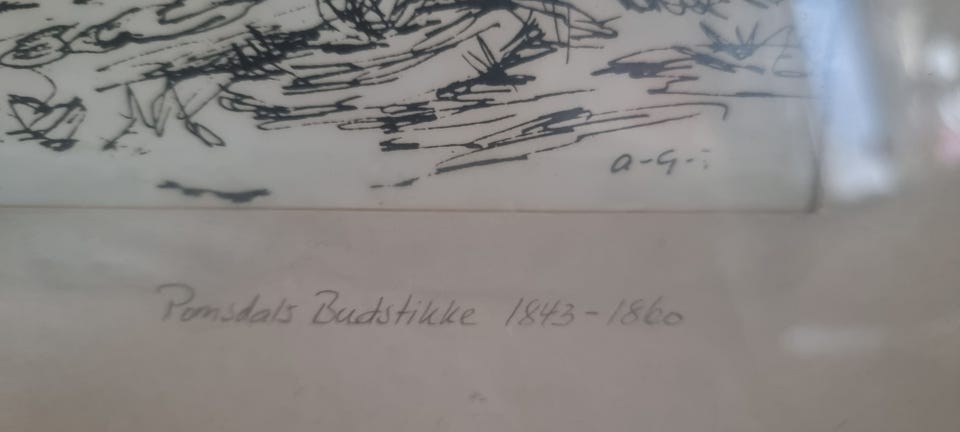 a-G-:
Romsdals Budstikke 1843-1860